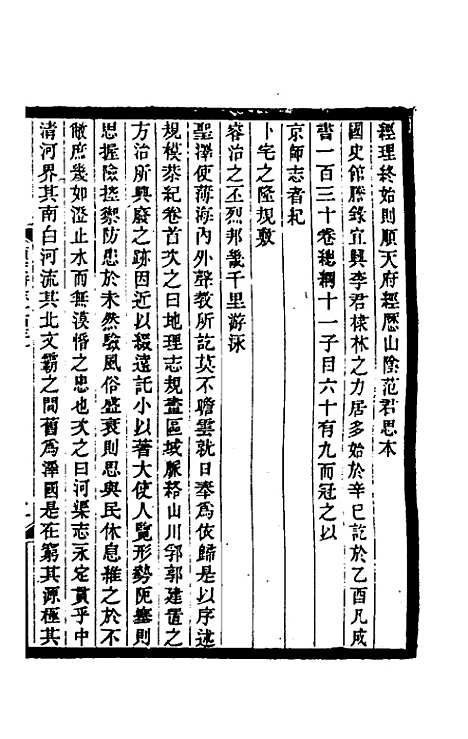 經理終始則順天府經歷山陰范君思本
國史館謄錄宜興李君棣林之力居多始於辛巳訖於乙酉凡成
書一百三十卷總綱十一子目六十有九而冠之以
京師志者杞
卜宅之隆規敷
睿治之丕烈邦畿千里游泳
聖澤使薄海內外聲教所訖莫不瞻雲就日奉爲依歸是以序述
規模粲紀卷首次之曰地理志規畫區域脈絡山川郛郭建置之
方治所興廢之跡因近以綴遠託小以著大使人覽形勢阨塞則
思握險控禦防患於未然驗風俗盛衰則思與民休息維之於不
敝庶幾如澄止水而無漠惛之患也次之曰河渠志永定貫乎中
清河界其南白河流其北文霸之間舊爲澤國是在窮其源極其